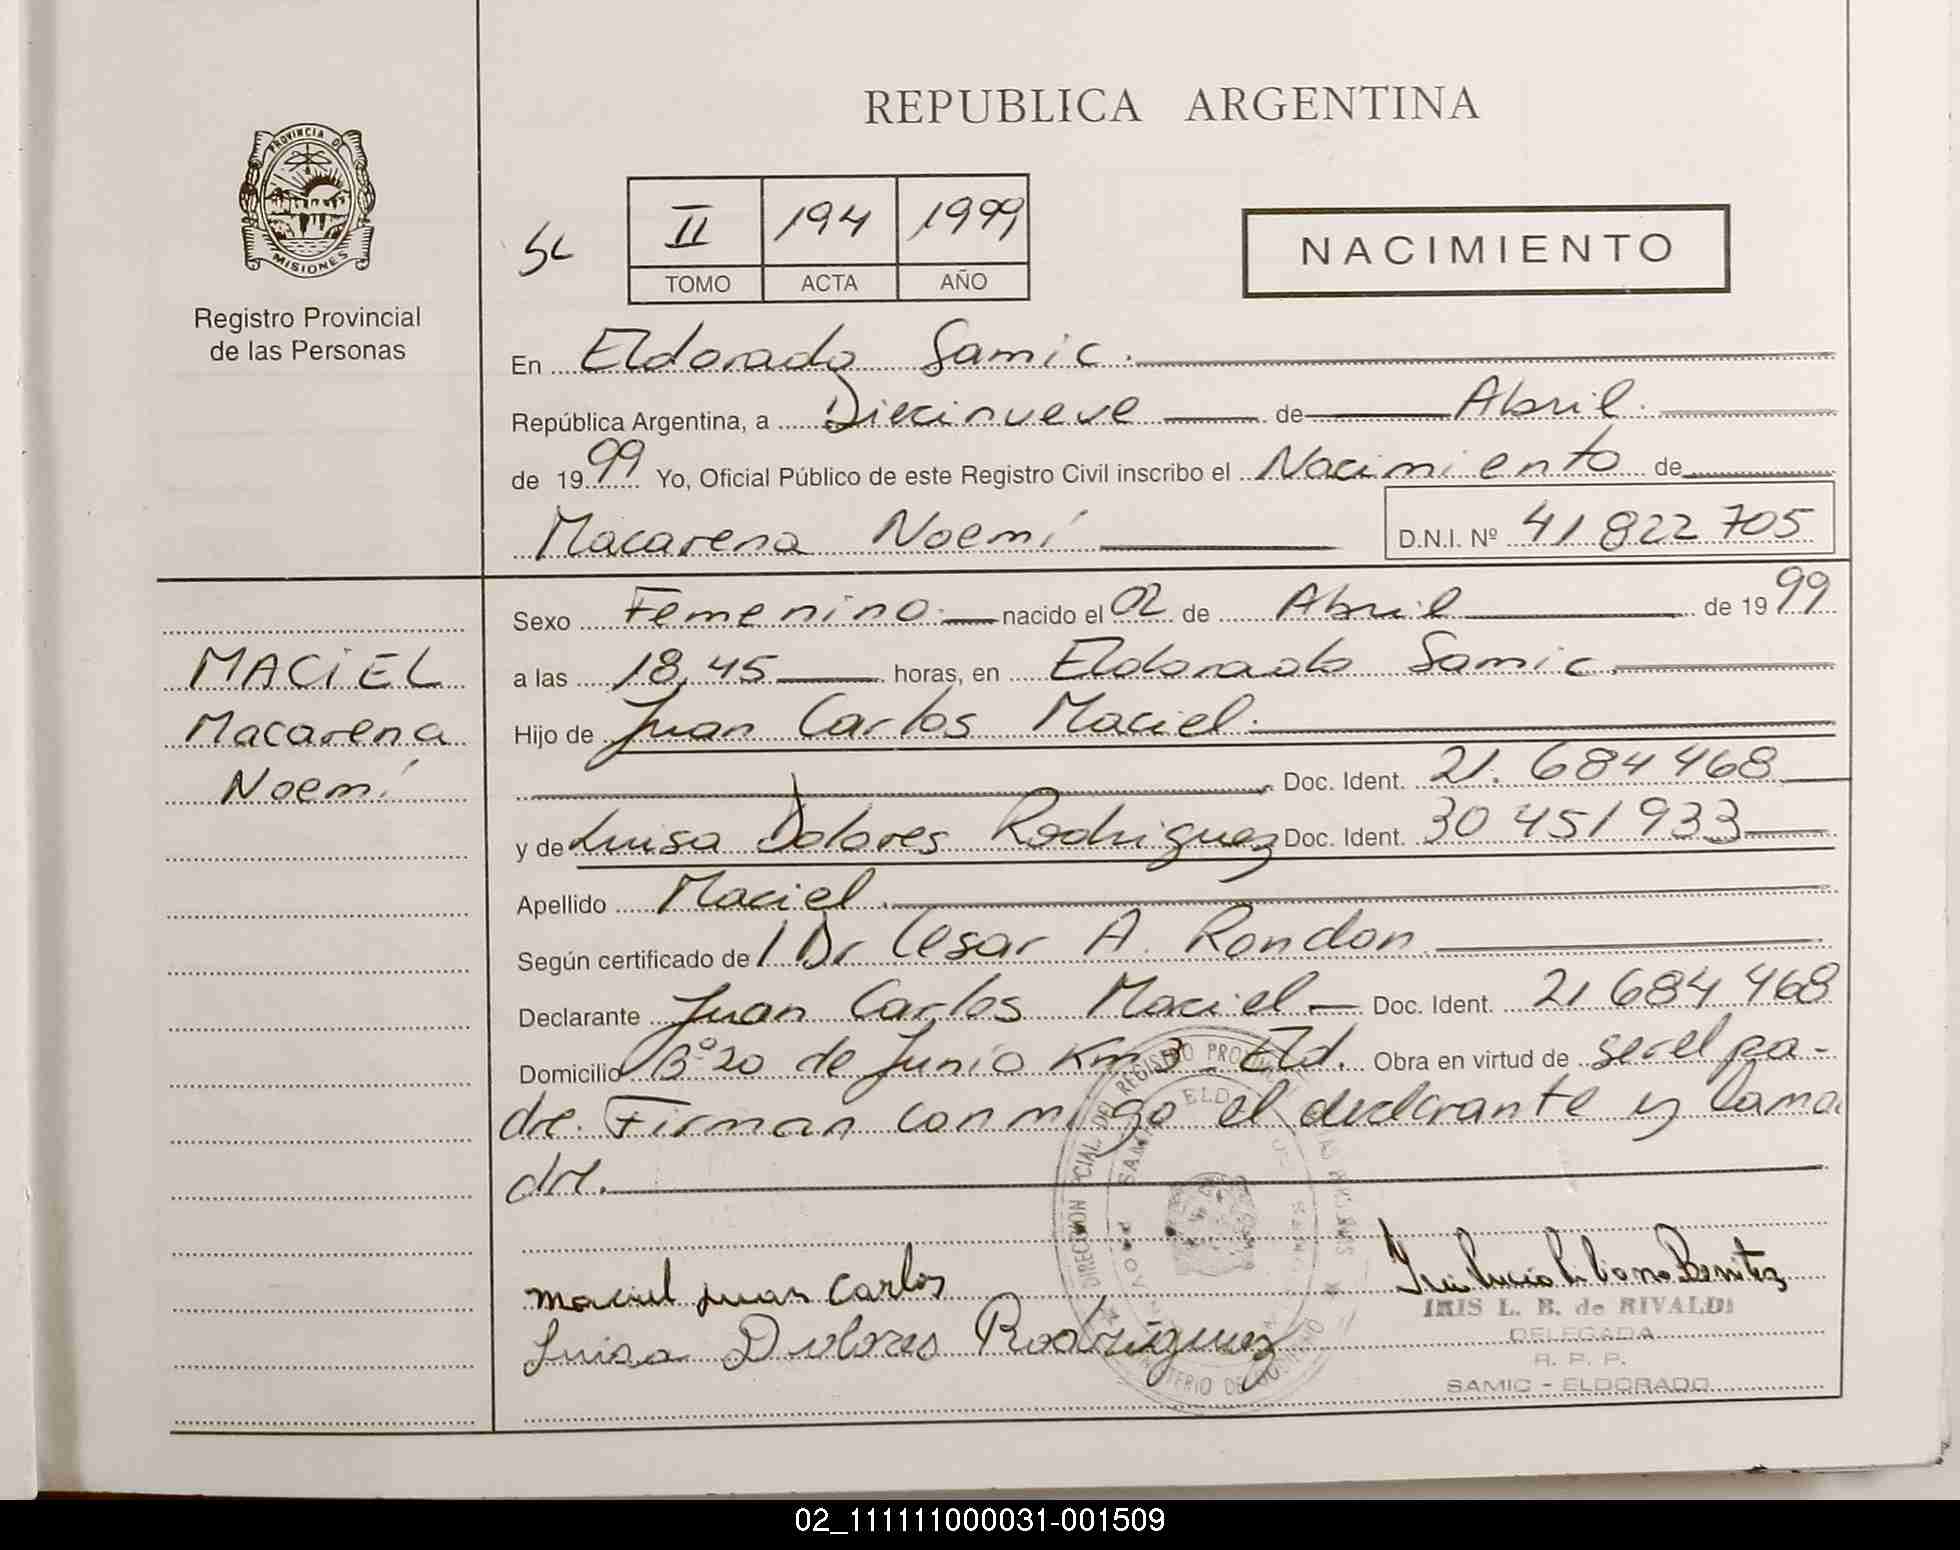 REPUBLICA ARGENTINA
PROVINCIA DE
MISIONES
Registro Provincial
de las Personas
SL
II 194 1999
TOMO ACTA AÑO
NACIMIENTO
En Eldorado Samic.
República Argentina, a Diecinueve de Abril.
de 1999 Yo, Oficial Público de este Registro Civil inscribo el Nacimiento de
Macarena Noemí D.N.I. Nº 41 822 705
MACIEL
Macarena
Noemí
Sexo Femenino. nacido el 02 de Abril de 1999
a las 18,45 horas, en Eldorado Samic.
Hijo de Juan Carlos Maciel.
Doc. Ident. 21.684468
y de Luisa Dolores Rodriguez Doc. Ident. 30 451933
Apellido Maciel.
Según certificado de l Dr Cesar A. Rondon
Declarante Juan Carlos Maciel - Doc. Ident. 21 684 468
Domicilio Bº 20 de Junio Km 3 - Eld. Obra en virtud de ser el pa-
dre. Firman conmigo el declarante y la ma
dre.
maciel juan Carlos
Luisa Dolores Rodriguez
Benitez
IRIS L. B. de RIVALDI
DELEGADA
R. P. P.
SAMIC - ELDORADO
DIRECCION PCIAL. DEL REGISTRO
02_111111000031-001509